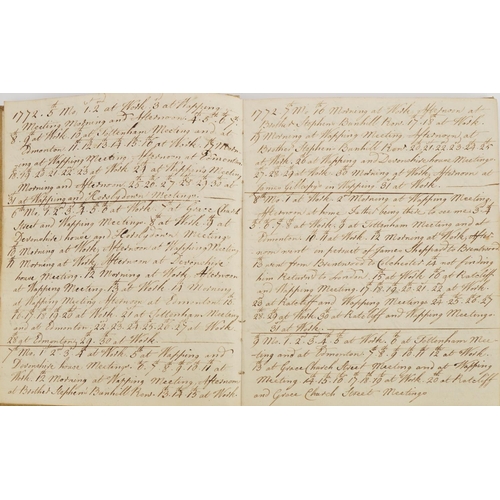 1772. 5th Mo. 1. 2 at Work 3 at Wapping
Meeting Morning and Afternoon 4. 5. 6. 7.
8 9 at Work 10 at Tottenham Meeting and at
Edmonton 11. 12. 13. 14. 15. 16 at Work 17 Morn-
ing at Wapping Meeting Afternoon at Edmonton
18. 19. 20 21 22 23 at Work 24 at Wapping Meeting
Morning and Afternoon 25 26. 27 28 29 30 at Work
31 at Wapping and Horslydown Meetings
6th Mo. 1. 2. 3. 4. 5 6 at Work 7 at Grace Church
Street and Wapping Meetings. 8 at Work 9 at
Devonshire house and Horslydown Meetings
10 Morning at Work, Afternoon at Wapping Meeting
11 Morning at Work Afternoon at Devonshire
house Meeting. 12 Morning at Work Afternoon
at Wapping Meeting. 13 at Work 14 Morning
at Wapping Meeting Afternoon at Edmonton 15
16. 17. 18. 19 20 at Work. 21 at Tottenham Meeting
and at Edmonton 22. 23. 24. 25. 26. 27 at Work
28 at Edmonton 29. 30 at Work.
7th Mo. 1. 2. 3. 4 at Work 5 at Wapping and
Devonshire house Meetings. 6. 7. 8. 9. 10. 11 at
Work. 12 Morning at Wapping Meeting, Afternoon
at Brother Stephen's Bunhill Row. 13. 14. 15 at Work
1772. 7th Mo. 16 Morning at Work, Afternoon at
Brother Stephens Bunhill Row. 17. 18 at Work.
19 Morning at Wapping Meeting Afternoon at
Brother Stephens Bunhill Row 20. 21. 22. 23. 24. 25
at Work. 26 at Wapping and Devonshire house Meetings
27. 28. 29 at Work. 30 Morning at Work, Afternoon at
James in Wapping 31 at Work.
8th Mo. 1 at Work. 2 Morning at Wapping Meeting
Afternoon at home. Father being here to see me. 3. 4.
5. 6. 7. 8 at Work. 9 at Tottenham Meeting and at
Edmonton. 10. 11 at Work. 12 Morning at Work After-
noon went in pursuit of James Sheppard to Brentwood
13 rose from Brentwood to Colchester 14 not finding
him Returned to London. 15 at Work. 16 at Ratcliff
and Wapping Meeting. 17. 18. 19. 20 21. 22 at Work.
23 at Ratcliff and Wapping Meetings. 24. 25. 26. 27
28. 29 at Work 30 at Ratcliff and Wapping Meetings
31 at Work.
9 Mo. 1. 2. 3. 4. 5 at Work. 6 at Tottenham Mee-
ting and at Edmonton. 7. 8. 9. 10. 11. 12 at Work.
13 at Grace Church Street Meeting and at Wapping
Meeting 14. 15. 16. 17. 18. 19 at Work. 20 at Ratcliff
and Grace Church Street Meetings